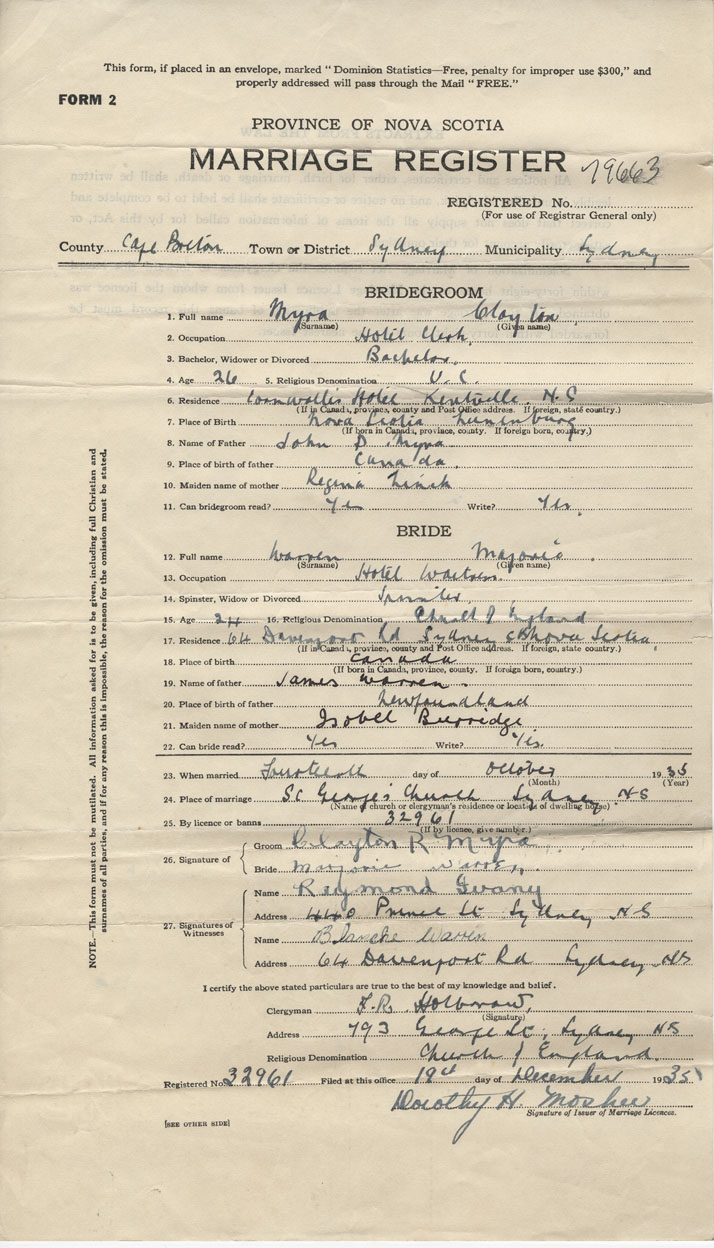 This form, if placed in an envelope, marked "Dominion Statistics—Free, penalty for improper use $300," and
properly addressed will pass through the Mail "FREE."
FORM 2
PROVINCE OF NOVA SCOTIA
MARRIAGE REGISTER 79663
REGISTERED No.
(For use of Registrar General only)
County Cape Breton Town or District Sydney Municipality Sydney
BRIDEGROOM
1. Full name Myra Clayton
(Surname) (Given name)
2. Occupation Hotel Clerk
3. Bachelor, Widower or Divorced Bachelor
4. Age 26 5. Religious Denomination U. C.
6. Residence Cornwallis Hotel Kentville, N.S
(If in Canada, province, county and Post Office address. If foreign, state country.)
7. Place of Birth Nova Scotia Lunenburg
(If born in Canada, province, county. If foreign born, country.)
8. Name of Father John D. Myra
9. Place of birth of father Canada
10. Maiden name of mother Regina
11. Can bridegroom read? Yes Write? Yes.
BRIDE
12. Full name Warren Marjorie
(Surname) (Given name)
13. Occupation Hotel Waitress
14. Spinster, Widow or Divorced Spinster
15. Age 24 16. Religious Denomination Church of England
17. Residence 64 Davenport Rd Sydney CB Nova Scotia
(If in Canada, province, county and Post Office address. If foreign, state country.)
18. Place of birth Canada
(If born in Canada, province, county. If foreign born, country.)
19. Name of father James Warren
20. Place of birth of father Newfoundland
21. Maiden name of mother Isobel Burridge
22. Can bride read? Yes Write? Yes.
23. When married Fourteenth day of October 1935
(Month) (Year)
24. Place of marriage St George's Church Sydney NS
(Name of church or clergyman's residence or location of dwelling house)
25. By licence or banns 32961
(If by licence, give number.)
26. Signature of
Groom Clayton R Myra
Bride Marjorie Warren
27. Signatures of Witnesses
Name Raymond
Address 440 Prince St Sydney NS
Name Blanche Warren
Address 64 Davenport Rd Sydney NS
I certify the above stated particulars are true to the best of my knowledge and belief.
Clergyman
(Signature)
Address 793 George St, Sydney NS
Religious Denomination Church of England.
Registered No. 32961 Filed at this office 19th day of December 1935
Dorothy H. Mosher
Signature of Issuer of Marriage Licences.
[SEE OTHER SIDE]
NOTE.—This form must not be mutilated. All information asked for is to be given, including full Christian and
surnames of all parties, and if for any reason this is impossible, the reason for the omission must be stated.